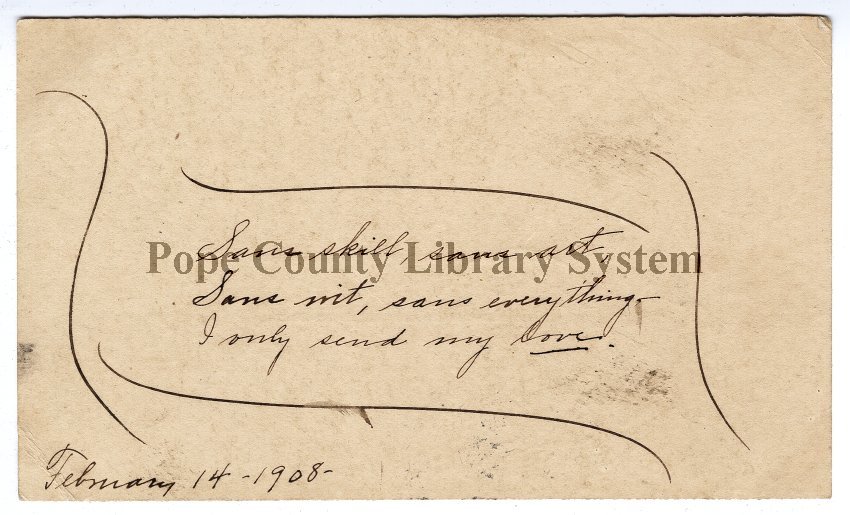 Sans skill, sans art,
Pope County Library System
Sans wit, sans everything—
I only send my love.
February 14 - 1908-